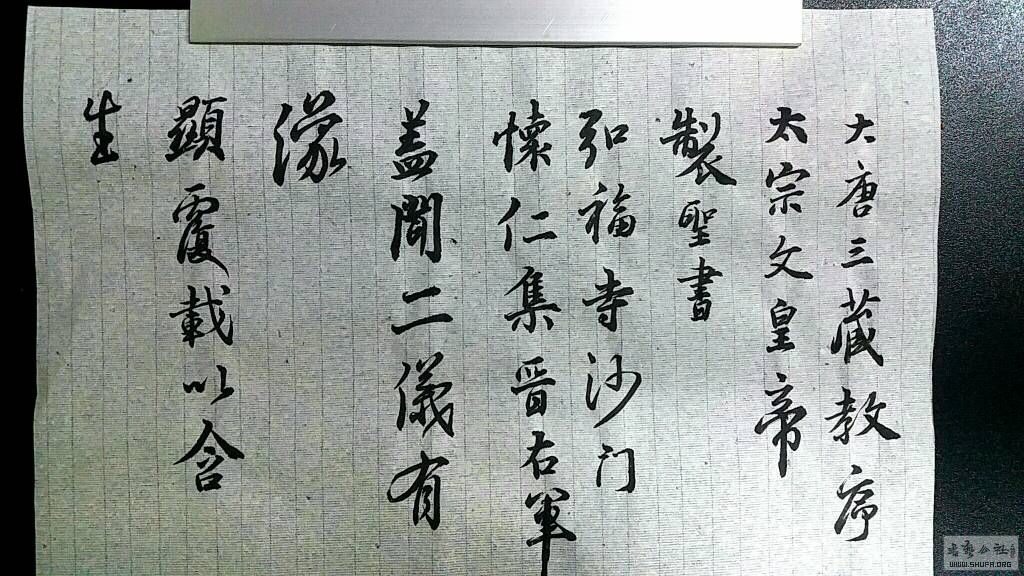 大唐三藏教序
太宗文皇帝
製聖書
弘福寺沙门
懐仁集晉右軍
盖聞二儀有
像
顯覆載以含
生
书艺公社
WWW.SHUFA.ORG